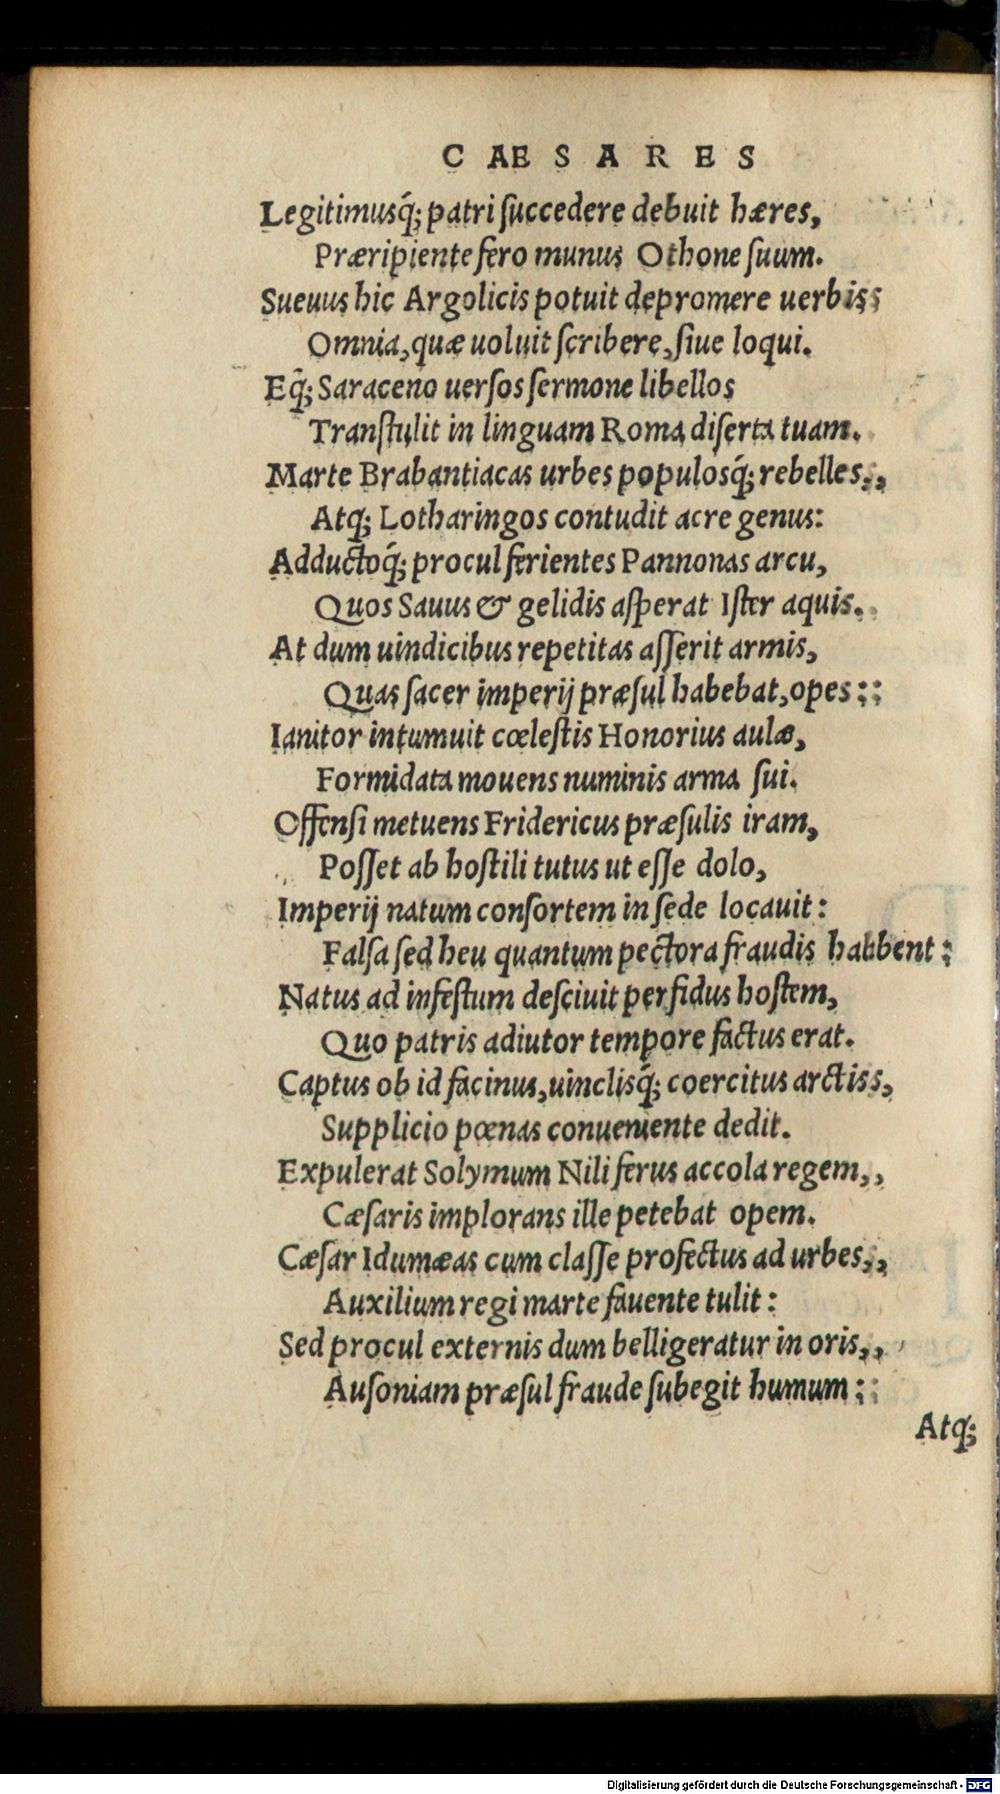 CAESARES
Legitimusq́; patri ſuccedere debuit hæres,
Præripiente fero munus Othone ſuum.
Sueuus hic Argolicis potuit depromere uerbiss
Omnia, quæ uoluit ſcribere, ſiue loqui.
Eq́; Saraceno uerſos ſermone libellos
Tranſtulit in linguam Roma diſerta tuam.
Marte Brabantiacas urbes populosq́; rebelles,,
Atq; Lotharingos contudit acre genus:
Adductoq́; procul ferientes Pannonas arcu,
Quos Sauus & gelidis aſperat Iſter aquis.
At dum uindicibus repetitas aſſerit armis,
Quas ſacer imperij præſul habebat, opes::
Ianitor intumuit cœleſtis Honorius aulæ,
Formidata mouens numinis arma ſui.
Offenſi metuens Fridericus præſulis iram,
Poſſet ab hoſtili tutus ut eſſe dolo,
Imperij natum conſortem in ſede locauit:
Falſa ſed heu quantum pectora fraudis habbent:
Natus ad infeſtum deſciuit perfidus hoſtem,
Quo patris adiutor tempore factus erat.
Captus ob id facinus, uinclisq́; coercitus arctiss,
Supplicio pœnas conueniente dedit.
Expulerat Solymum Nili ferus accola regem,,
Cæſaris implorans ille petebat opem.
Cæſar Idumæas cum claſſe profectus ad urbes,,
Auxilium regi marte fauente tulit:
Sed procul externis dum belligeratur in oris,,
Auſoniam præſul fraude ſubegit humum::
Atq;
Digitalisierung gefördert durch die Deutsche Forschungsgemeinschaft - DFG